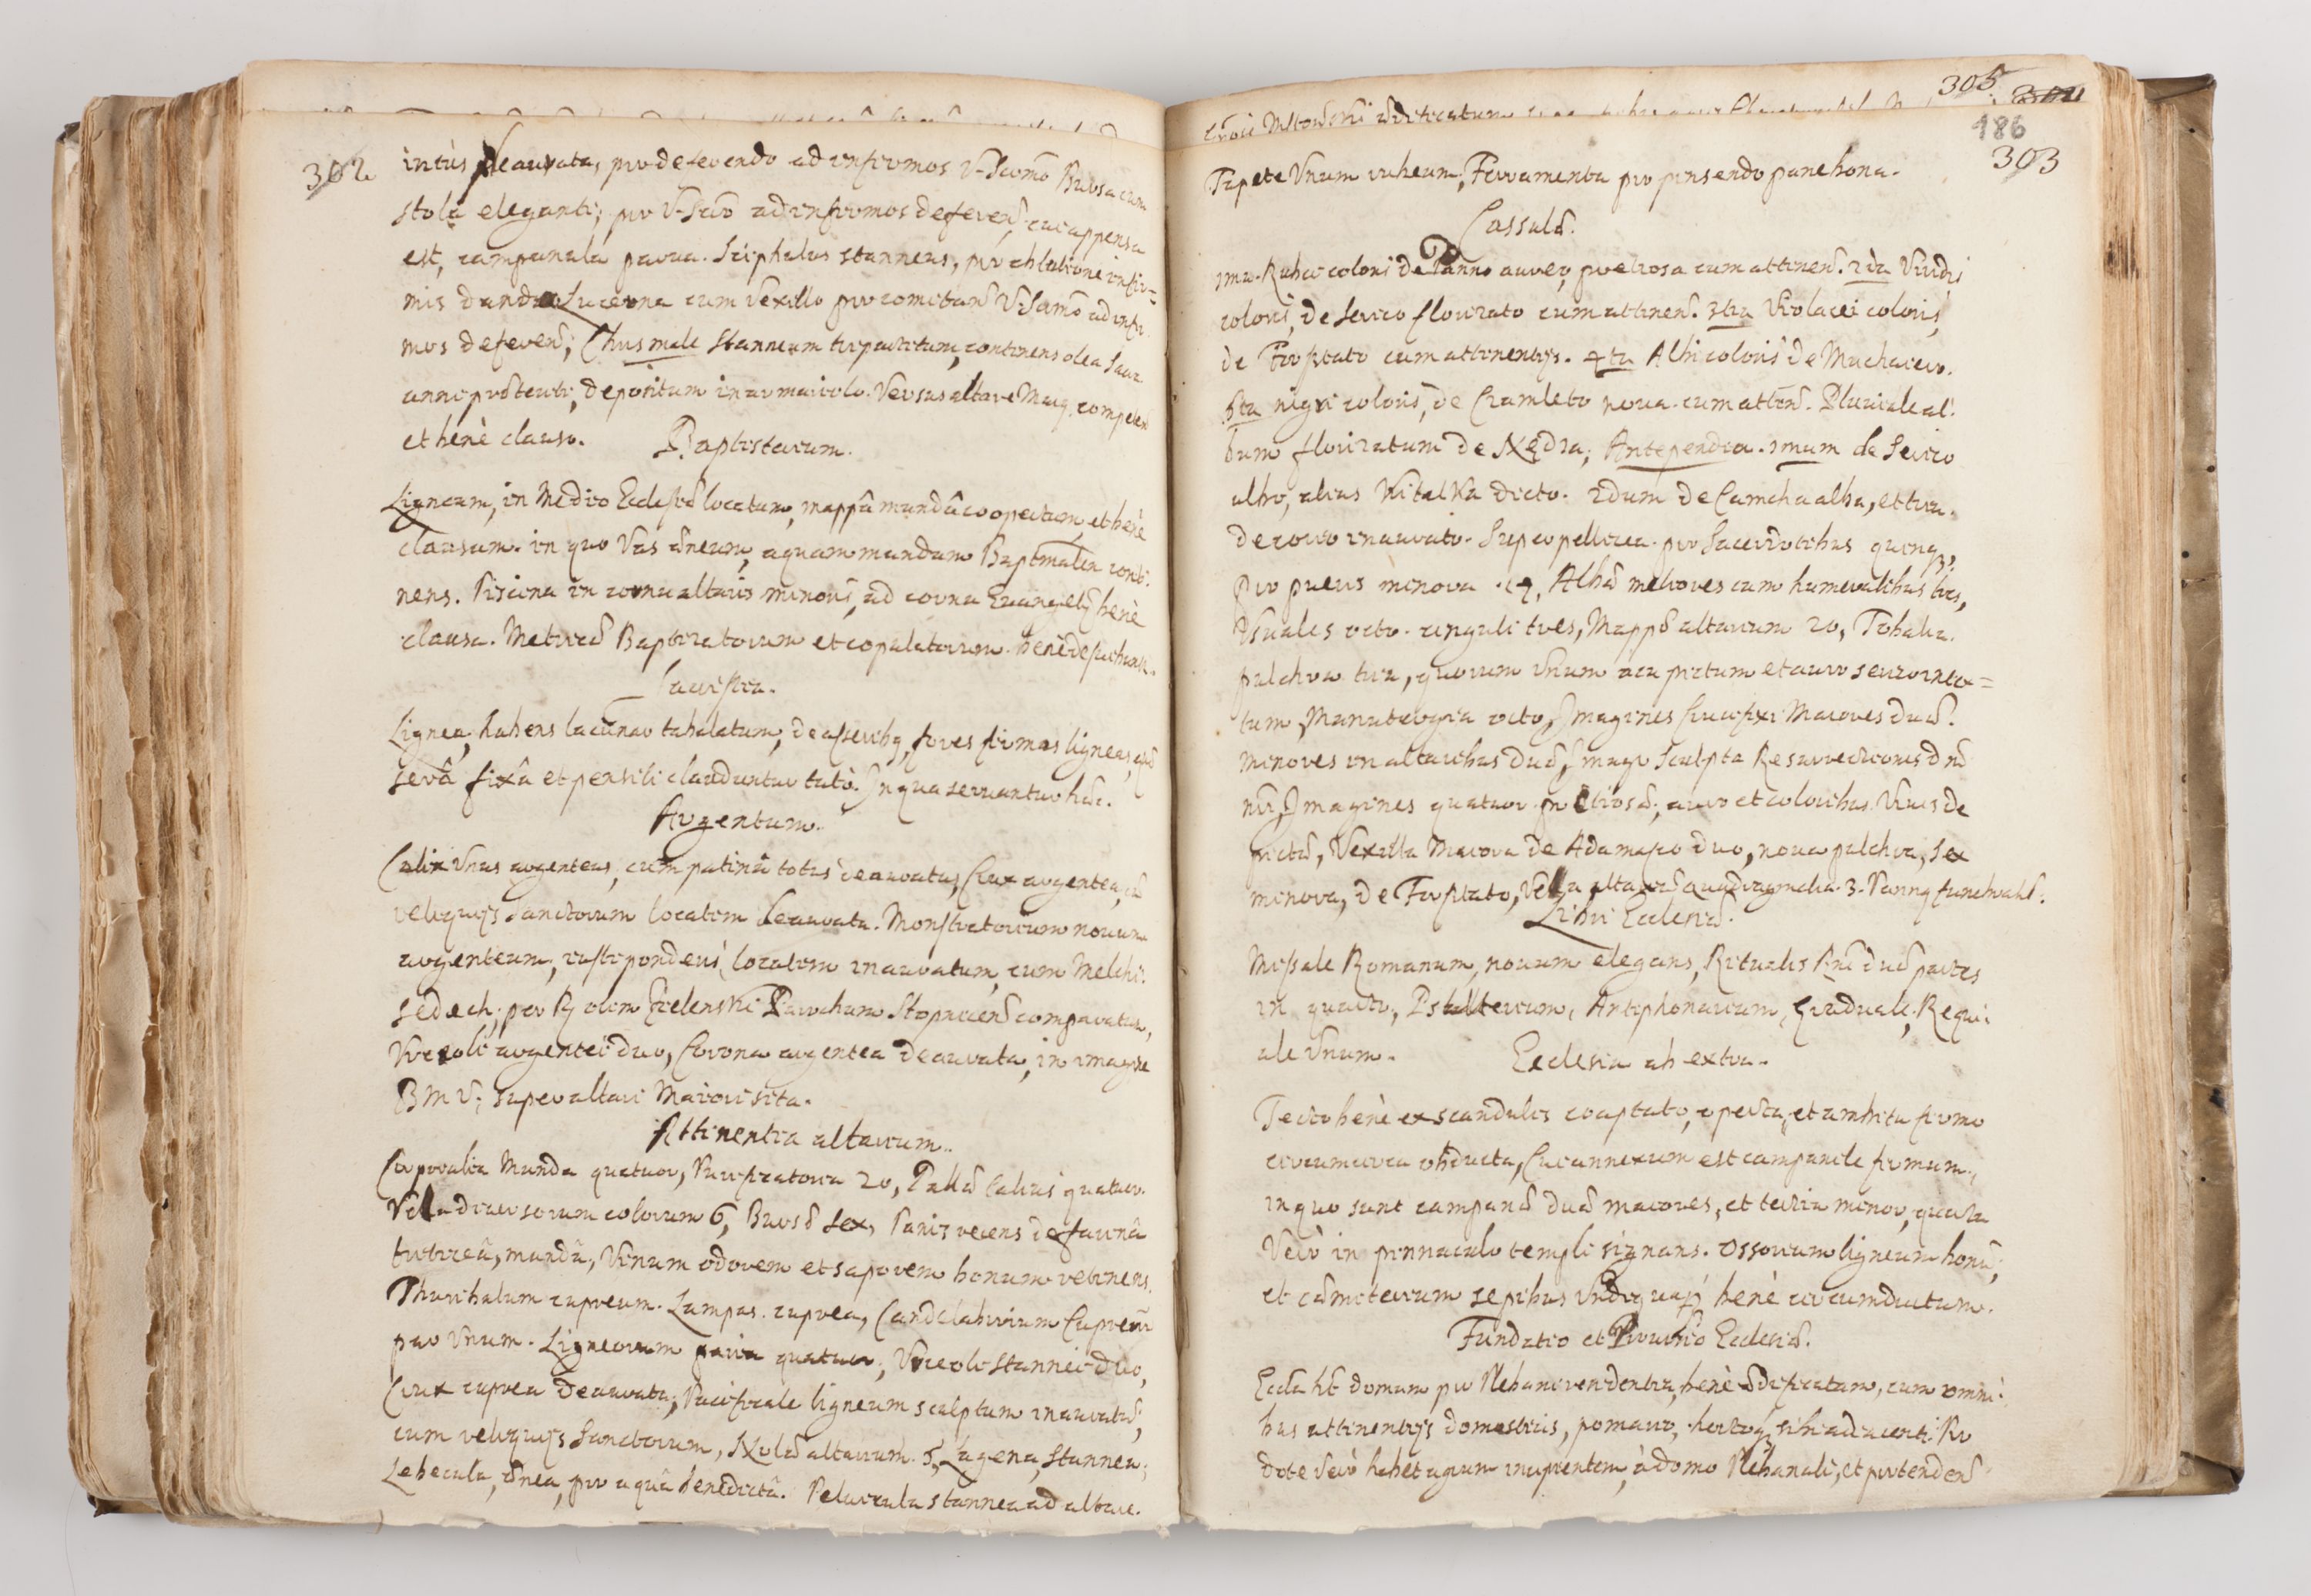 302
intus deaurata, pro deferendo ad infirmos V. Sacrmo Bursa cum
stola eleganti; pro V. Sacro ad infirmos deferend. cui appensa
est, campanula parua. Sciphulus stanneus, pro ablutione infir=
mis danda Lucerna cum Vexillo pro comitand V. Sacrmo ad infir
mos deferend; Chrismale Stanneum tripartitum, continens olea Sacr
anni pnteriti, depositum in armariolo. Versus altare Maiq. competen
et benè clauso.
Baptisterium.
Ligneum, in Medio Ecclesiæ locatum, mappâ mundâ coopertum, et benè
clausum. in quo Vas æneum, aquam mundam Baptmalem conti.
nens. Piscina in cornu altaris minoris, ad cornu Euangelij benè
clausa. Metricæ Baptizatorum et copulatorum. benè descriptæ.
Sacristia.
Lignea, habens lacunar tabulatum, de asseribq, fores firmas ligneas, quæ
serâ fixâ et pensili clauduntur tutò. In qua seruantur hæc.
Argentum.
Calix Vnus argenteus, cum patinâ totus deauratus, Crux argentea, cū
reliquijs Sanctorum locatim deaurata. Monstratorium nouum
argenteum, locatim inauratum, cum Melchi.
sedech; per R olim Parochum comparatum,
Vrceoli argentei duo, Corona argentea deaurata, in imagine
B M V; super altari Maiori sita.
Attinentia altarium.
Corporalia Munda quatuor, Purificatoria 20, Pallæ Calicis quatuor.
Vella diuersorum colorum 6, Bursæ sex, Panis recens de farinâ
triticeâ, mundâ, Vinum odorem et saporem bonum retinens.
Thuribulum cupreum. Lampas cuprea, Candelabrorum Cupreorū
par Vnum. Ligneorum paria quatuor, Vrceoli stannei duo,
Crux cuprea deaurata, Pacificale ligneum sculptum inauratū,
cum reliquijs Sanctorum, Nolæ altarium 5, Lagena, stannea;
Lebecula, ænea, pro aquâ benedictâ. Peluicula stannea ad altare.
305. 304
186
303
Tapete Vnum rubeum, Ferramenta pro pinsendo pane bona.
Cassulæ.
1ma. Rubei coloris de Panno aureo, pretiosa cum attinen. 2da Viridis
coloris, de Serico florizato cum attinen. 3tia Violacei coloris,
de cum attinentijs. 4ta Albi coloris de Muchaiero.
5ta nigri coloris, de Cramleto noua. cum attin. Pluuiale al:
bum florizatum de Nędza; Antependia. 1mum de Serico
albo, alias Kitaika dicto. 2dum de Camcha alba, et tria
de corio inaurato. Superpellicea. pro Sacerdotibus quinq,
pro pueris minora .14, Albæ meliores cum humeralibus tres,
Vsuales octo. cinguli tres, Mappæ altarium 20, Tobalia.
pulchra tria, quorum Vnum acu pictum et auro seu contex=
tum, Manutergia octo, Imagines Crucifixi Maiores duæ.
minores in altaribus duæ, Imago Sculpta Resurrectionis dni
nri, Imagines quatuor pretiosæ, auro et coloribus Viuis de
pictæ, Vexilla Maiora de Adamasco duo, noua pulchra, sex
minora, de Vella altaris quadragesmalia. 3. Pannq funebralis.
Libri Ecclesiæ.
Missale Romanum, nouum elegans, Ritualis Rni duæ partes
in quarto, Psalterium, Antiphonarium, Graduale, Requi:
ale Vnum.
Ecclesia ab extra.
Tecto benè ex scandulis coaptato, operta, et ambitu firmo
circumcirca obducta, Cui annexum est campanile firmum;
in quo sunt campanæ duæ maiores, et tertia minor, quarta
Verò in pinnaculo templi signans. Ossorium ligneum bonū;
et cæmiterium sepibus Vndiquaq benè circumductum.
Fundatio et Prouisio Ecclesiæ.
Eccla ht domum pro Plebani residentia, benè ædificatam, cum omni:
bus attinentijs domesticis, pomario, hortoq sibi adiacenti. Pro
dote Verò habet agrum incipientem, à domo Plebanali, et protenden